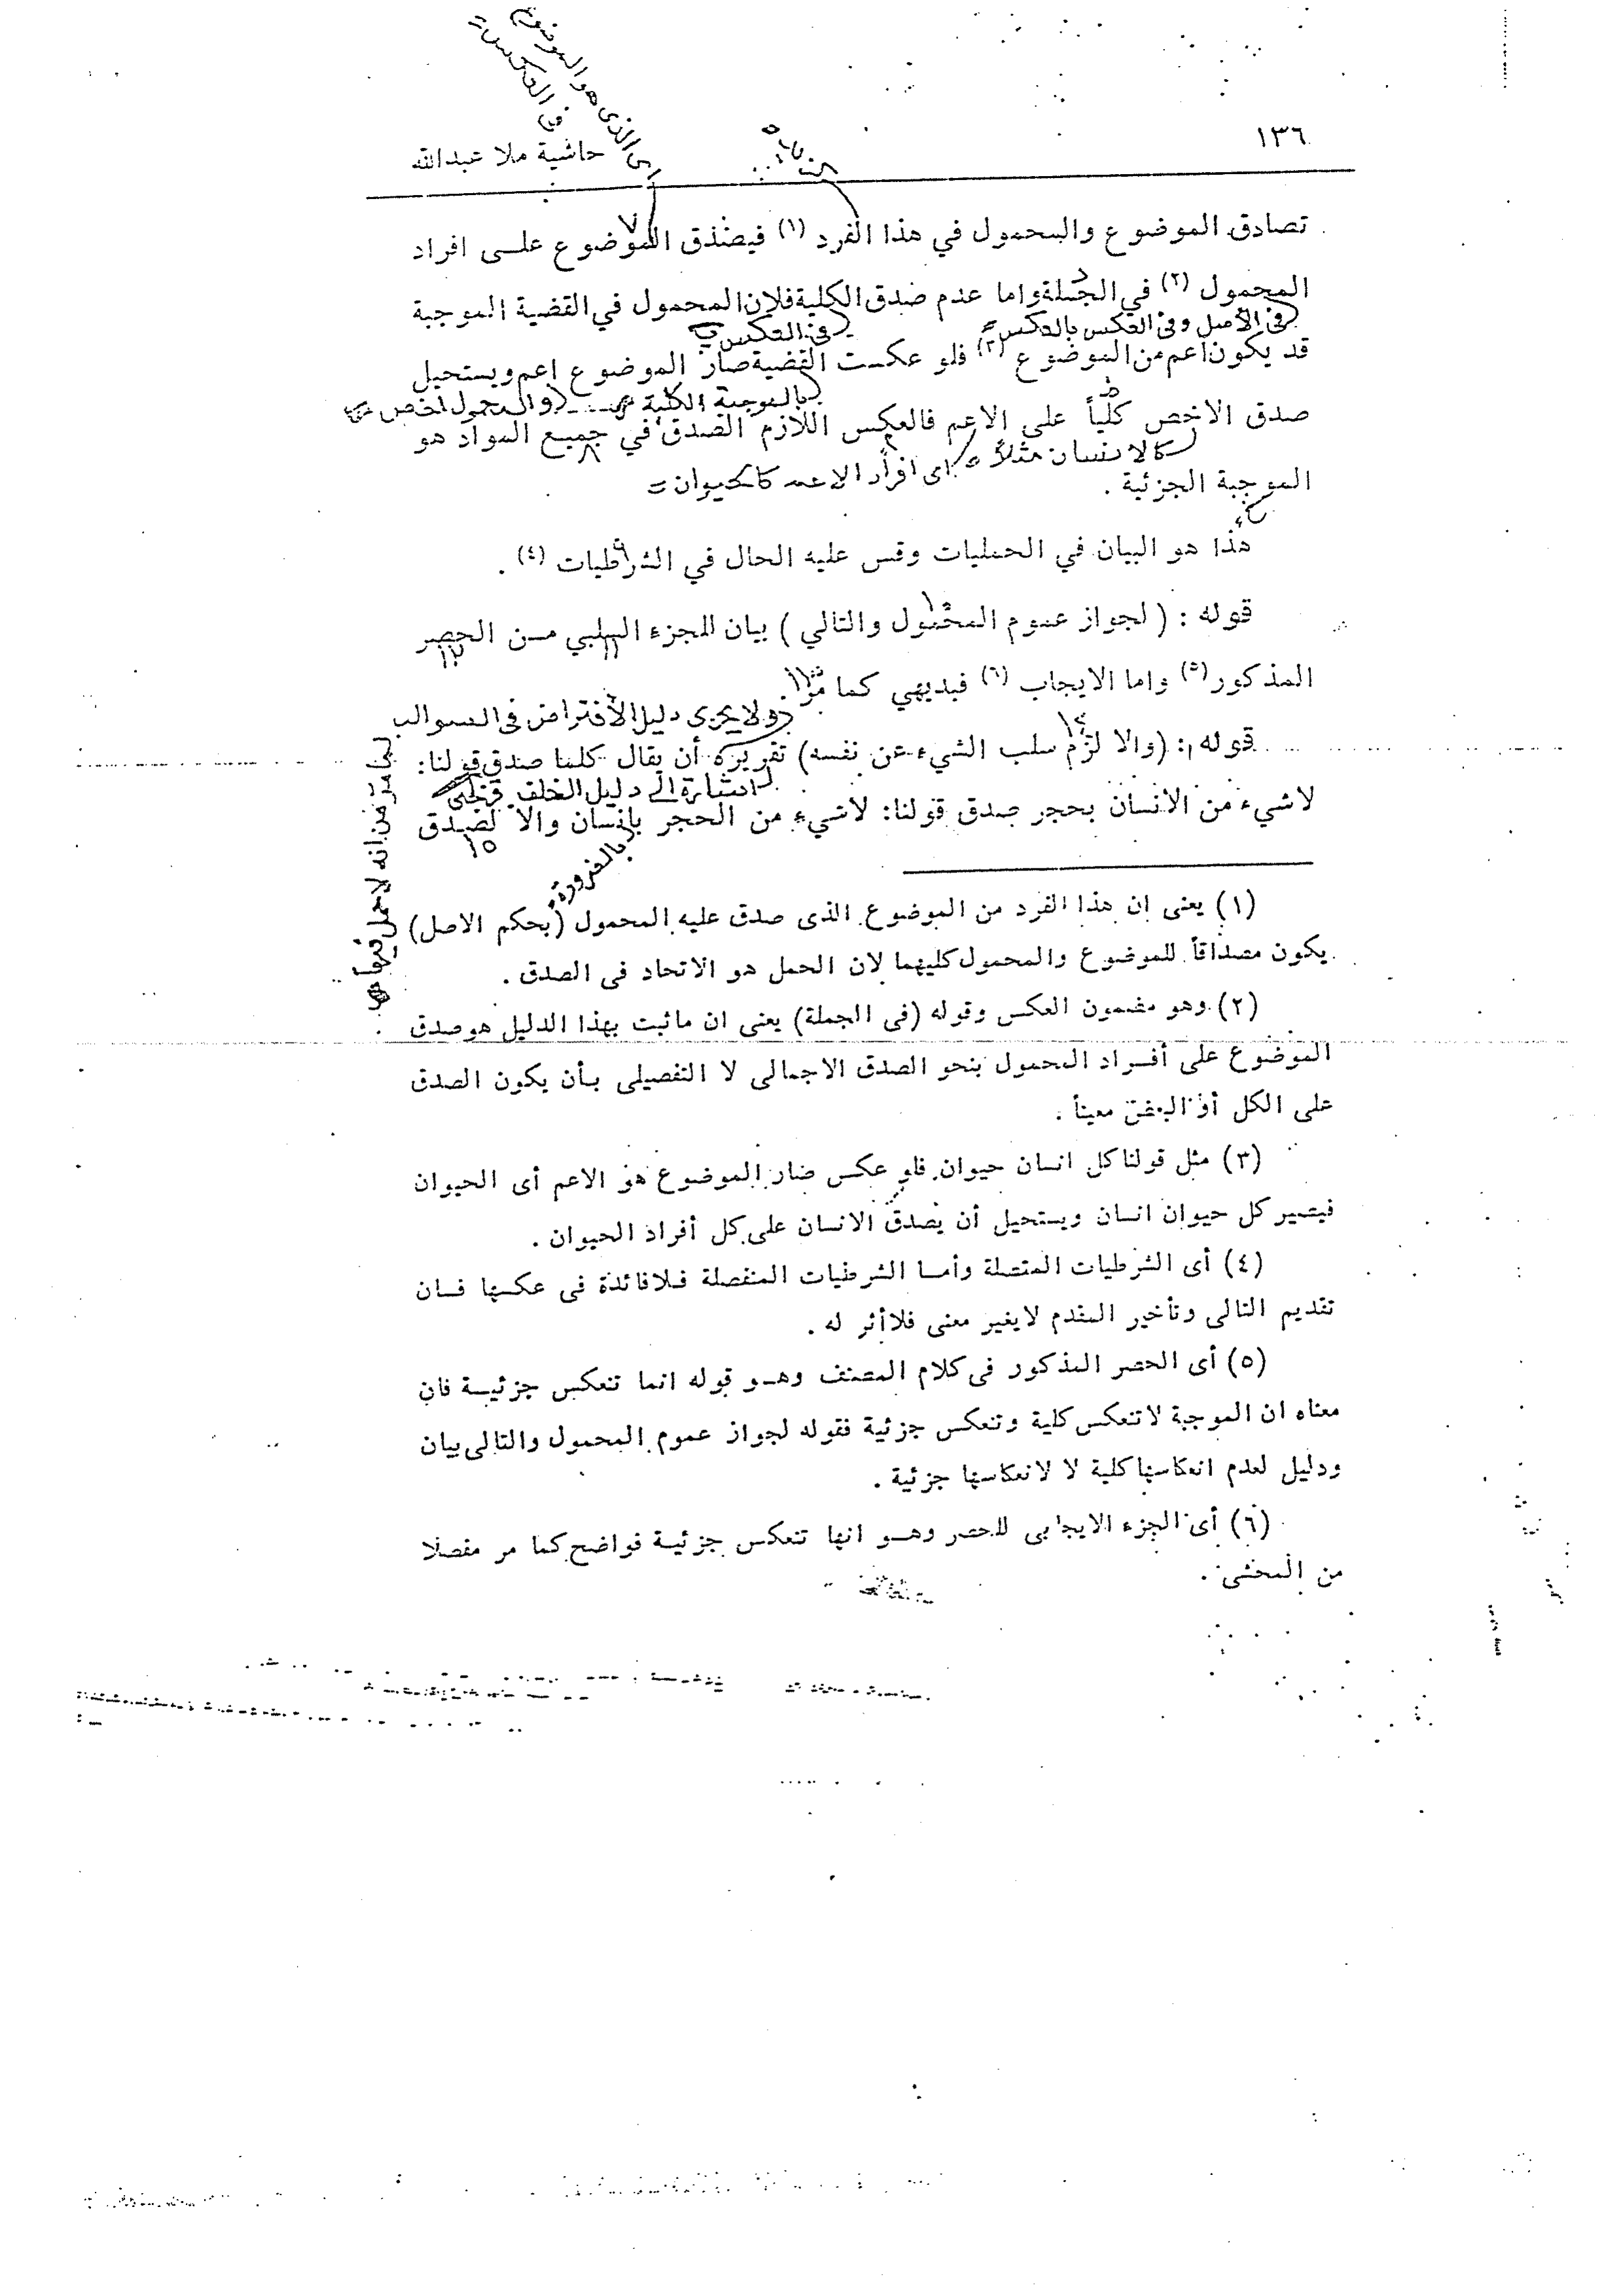 ١٣٦
حاشية ملا عبدالله
اى الذى هو الموضوع
فى العكس
تصادق الموضوع والمحمول في هذا الفرد (١) فيصدق الموضوع علـى افراد
المحمول (٢) في الجملة واما عدم صدق الكلية فلان المحمول في القضية الموجبة
فى الاصل وفى العكس بالعكس
فى العكس
قد يكون اعم من الموضوع (٣) فلو عكست القضية صار الموضوع اعم ويستحيل
بالموجبة الكلية
والمحمول اخص
صدق الاخص كلياً على الاعم فالعكس اللازم الصدق في جميع المواد هو
كالانسان مثلاً
اى افراد الاعم كالحيوان
الموجبة الجزئية .
هذا هو البيان في الحمليات وقس عليه الحال في الشرطيات (٤) .
قوله : ( لجواز عموم المحمول والتالي ) بيان للجزء السلبي مـن الحصر
المذكور (٥) واما الايجاب (٦) فبديهي كما مر .
ولا يجرى دليل الافتراض فى السوالب
قوله : (والا لزم سلب الشيء عن نفسه) تقريره أن يقال كلما صدق قولنا :
اشارة الى دليل الخلف
لاشيء من الانسان بحجر صدق قولنا : لاشيء من الحجر بانسان والا لصدق
بالضرورة
(١) يعنى ان هذا الفرد من الموضوع الذى صدق عليه المحمول (بحكم الاصل)
يكون مصداقاً للموضوع والمحمول كليهما لان الحمل هو الاتحاد فى الصدق .
(٢) وهو مضمون العكس وقوله (فى الجملة) يعنى ان ماثبت بهذا الدليل هو صدق
الموضوع على أفـراد المحمول بنحو الصدق الاجمالى لا التفصيلى بأن يكون الصدق
على الكل أو البعض معيناً .
(٣) مثل قولنا كل انسان حيوان فلو عكس صار الموضوع هو الاعم أى الحيوان
فيصير كل حيوان انسان ويستحيل أن يصدق الانسان على كل أفراد الحيوان .
(٤) أى الشرطيات المتصلة وأمـا الشرطيات المنفصلة فـلافائدة فى عكسها فـان
تقديم التالى وتأخير المقدم لايغير معنى فلاأثر له .
(٥) أى الحصر المذكور فى كلام المصنف وهـو قوله انما تنعكس جزئيـة فان
معناه ان الموجبة لاتنعكس كلية وتنعكس جزئية فقوله لجواز عموم المحمول والتالى بيان
ودليل لعدم انعكاسها كلية لا لانعكاسها جزئية .
(٦) أى الجزء الايجابى للحصر وهـو انها تنعكس جزئيـة فواضح كما مر مفصلا
من المحشى .